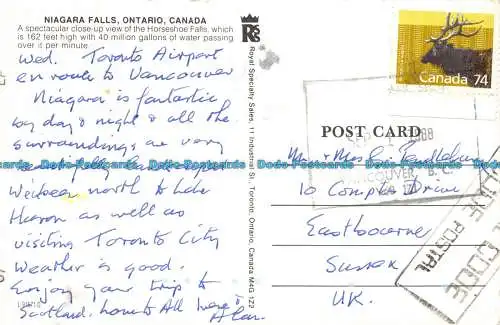 NIAGARA FALLS, ONTARIO, CANADA
A spectacular close-up view of the Horseshoe Falls, which
is 162 feet high with 40 million gallons of water passing
over it per minute.
Wed. Toronto Airport
en route to Vancouver
Niagara is fantastic
by day & night & all the
surroundings are very
beautifully landscaped
We've been north to Lake
Huron as well as
visiting Toronto City
Weather is good.
Enjoy your trip to
Scotland. Love to All
Alan.
L35718
Royal Specialty Sales, 11 Industrial St., Toronto, Ontario, Canada M4G 1Z2
Canada 74
1988
VANCOUVER B.C.
POST CARD
Mr & Mrs
10 Drive
Eastbourne
Sussex
U.K.
POSTAL CODE
CODE POSTAL
Dodo-Postcards Dodo-Postcards Dodo-Postcards Dodo-Postcards